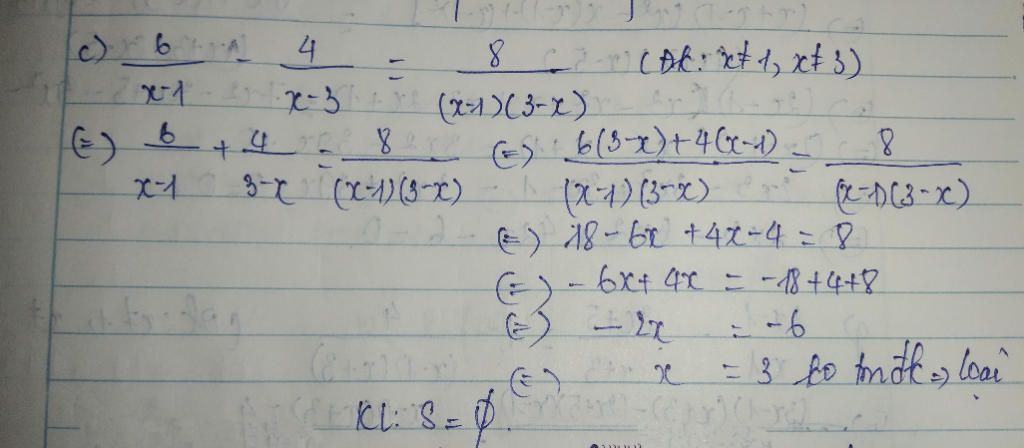 c) 6/(x-1) - 4/(x-3) = 8/((x-1)(3-x)) (ĐK: x≠1, x≠3)
(=) 6/(x-1) + 4/(3-x) = 8/((x-1)(3-x)) (=) (6(3-x)+4(x-1))/((x-1)(3-x)) = 8/((x-1)(3-x))
(=) 18-6x+4x-4 = 8
(=) -6x+4x = -18+4+8
(=) -2x = -6
(=) x = 3 ko tmđk => loại
KL: S = ∅.